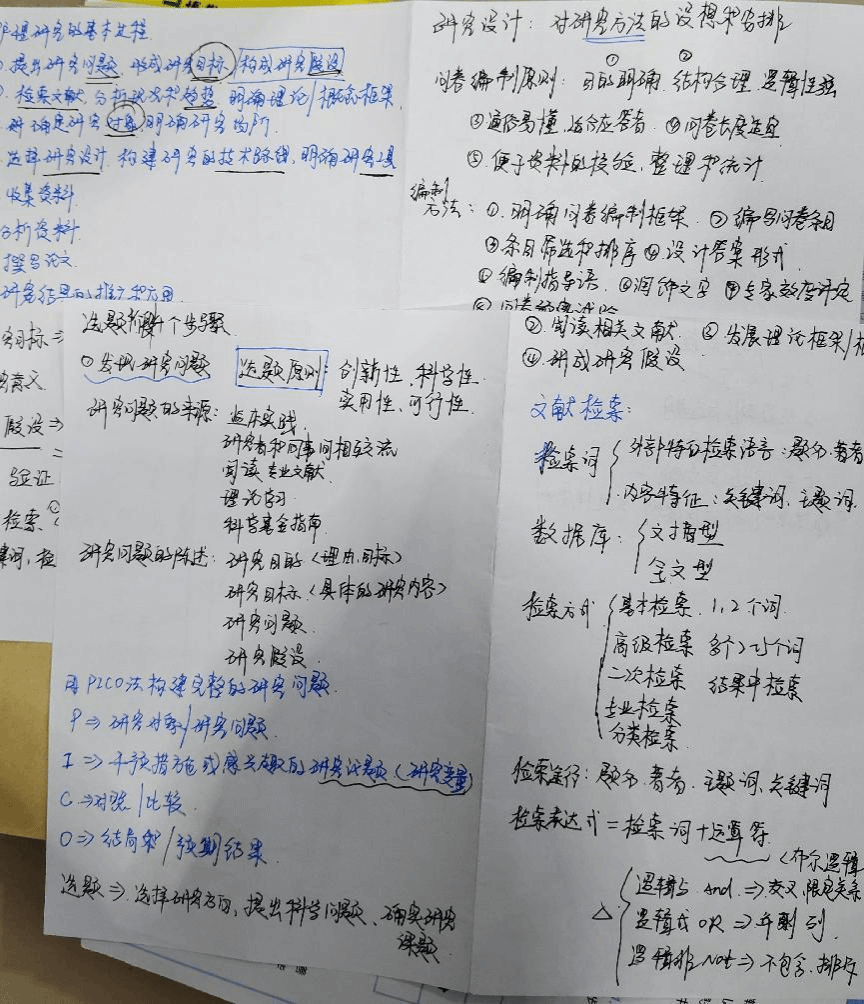 护理研究的基本过程
提出研究问题,形成研究目标/构成研究假设
检索文献,分析现状和趋势,明确理论/概念框架
确定研究对象,明确研究场所
选择研究设计,构建研究的技术路线,明确研究工具
收集资料
分析资料
撰写论文
研究结果的推广和应用
研究设计:对研究方法的设想和安排
问卷编制原则:①目的明确 ②结构合理,逻辑性强
③通俗易懂,适合应答者 ④问卷长度适宜
⑤便于资料的校验,整理和统计
编制
方法:①明确问卷编制框架 ②编写问卷条目
③条目筛选和排序 ④设计答案形式
⑤编制指导语 ⑥润饰文字 ⑦专家效度评定
目标⇒
意义
假设⇒
验证
检索
词,检
选题阶段个步骤
①发现研究问题 选题原则:创新性、科学性
实用性、可行性
研究问题的来源:临床实践
研究者和同事间相互交流
阅读专业文献
理论学习
科学基金指南
研究问题的陈述:研究目的(理由、目标)
研究目标(具体的研究内容)
研究问题
研究假设
用PICO法构建完整的研究问题
P⇒研究对象/研究问题
I⇒干预措施或感兴趣的研究议题(研究变量)
C⇒对照/比较
O⇒结局和/预期结果
选题⇒选择研究方向,提出科学问题、确定研究
课题
②阅读相关文献 ③发展理论框架/概
④形成研究假设
文献检索:
检索词 外部特征检索语言:题名、著者
内容特征:关键词、主题词
数据库:文摘型
全文型
检索方式 基本检索 1,2个词
高级检索 多个>2个词
二次检索 结果中检索
专业检索
分类检索
检索途径:题名、著者、主题词、关键词
检索表达式=检索词+运算符
(布尔逻辑
△ 逻辑与 And ⇒交叉,限定关系
逻辑或 OR ⇒并列
逻辑非 Not ⇒不包含,排除